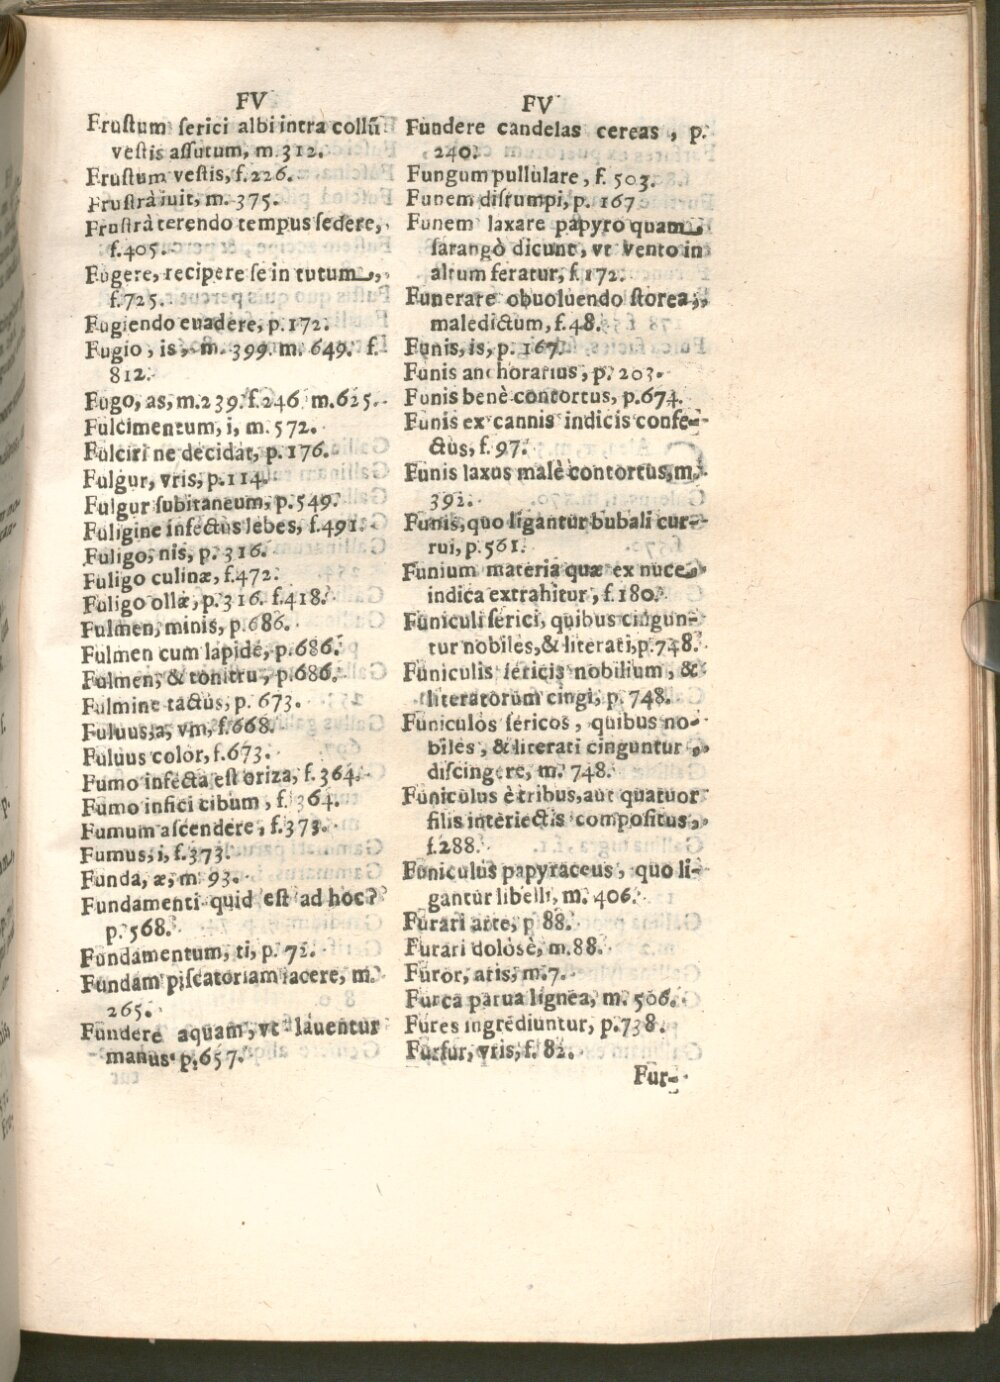 FV
Frustum serici albi intra collũ
vestis assutum, m.312.
Frustum vestis, f.226.
Frustrà iuit, m. 375.
Frustrà terendo tempus sedere,
f.405.
Fugere, recipere se in tutum,
f.725.
Fugiendo euadere, p.172.
Fugio, is, m. 399. m. 649. f.
812.
Fugo, as, m.239. f.246. m.625.
Fulcimentum, i, m. 572.
Fulciri ne decidat, p.176.
Fulgur, vris, p.114.
Fulgur subitaneum, p.549.
Fuligine infectus lebes, f.491.
Fuligo, nis, p. 316.
Fuligo culinæ, f.472.
Fuligo ollæ, p.316. f.418.
Fulmen, minis, p.686.
Fulmen cum lapide, p.686.
Fulmen, & tonitru, p.686.
Fulmine tactus, p. 673.
Fuluus, a, vm, f.668.
Fuluus color, f.673.
Fumo infecta est oriza, f.364.
Fumo infici cibum, f. 364.
Fumum ascendere, f.373.
Fumus, i, f.373.
Funda, æ, m. 93.
Fundamenti quid est ad hoc?
p.568.
Fundamentum, ti, p. 72.
Fundam piscatoriam iacere, m.
265.
Fundere aquam, vt lauentur
manus p.657.
FV
Fundere candelas cereas, p.
240.
Fungum pullulare, f. 503.
Funem disrumpi, p. 167.
Funem laxare papyro quam
sarangò dicunt, vt vento in
altum feratur, f.172.
Funerare obuoluendo storea,
maledictum, f.48.
Funis, is, p. 167.
Funis anchorarius, p. 203.
Funis benè contortus, p.674.
Funis ex cannis indicis confe-
ctus, f.97.
Funis laxus malè contortus, m.
392.
Funis, quo ligantur bubali cur-
rui, p.561.
Funium materia quæ ex nuce
indica extrahitur, f.180.
Funiculi serici, quibus cingun-
tur nobiles, & literati, p.748.
Funiculis sericis nobilium, &
literatorum cingi, p. 748.
Funiculos sericos, quibus no-
biles, & literati cinguntur
discingere, m. 748.
Funiculus è tribus, aut quatuor
filis interiectis compositus,
f.288.
Funiculus papyraceus, quo li-
gantur libelli, m. 406.
Furari arte, p 88.
Furari dolosè, m.88.
Furor, aris, m.7.
Furca parua lignea, m. 506.
Fures ingrediuntur, p.738.
Furfur, vris, f. 82.
Fur-